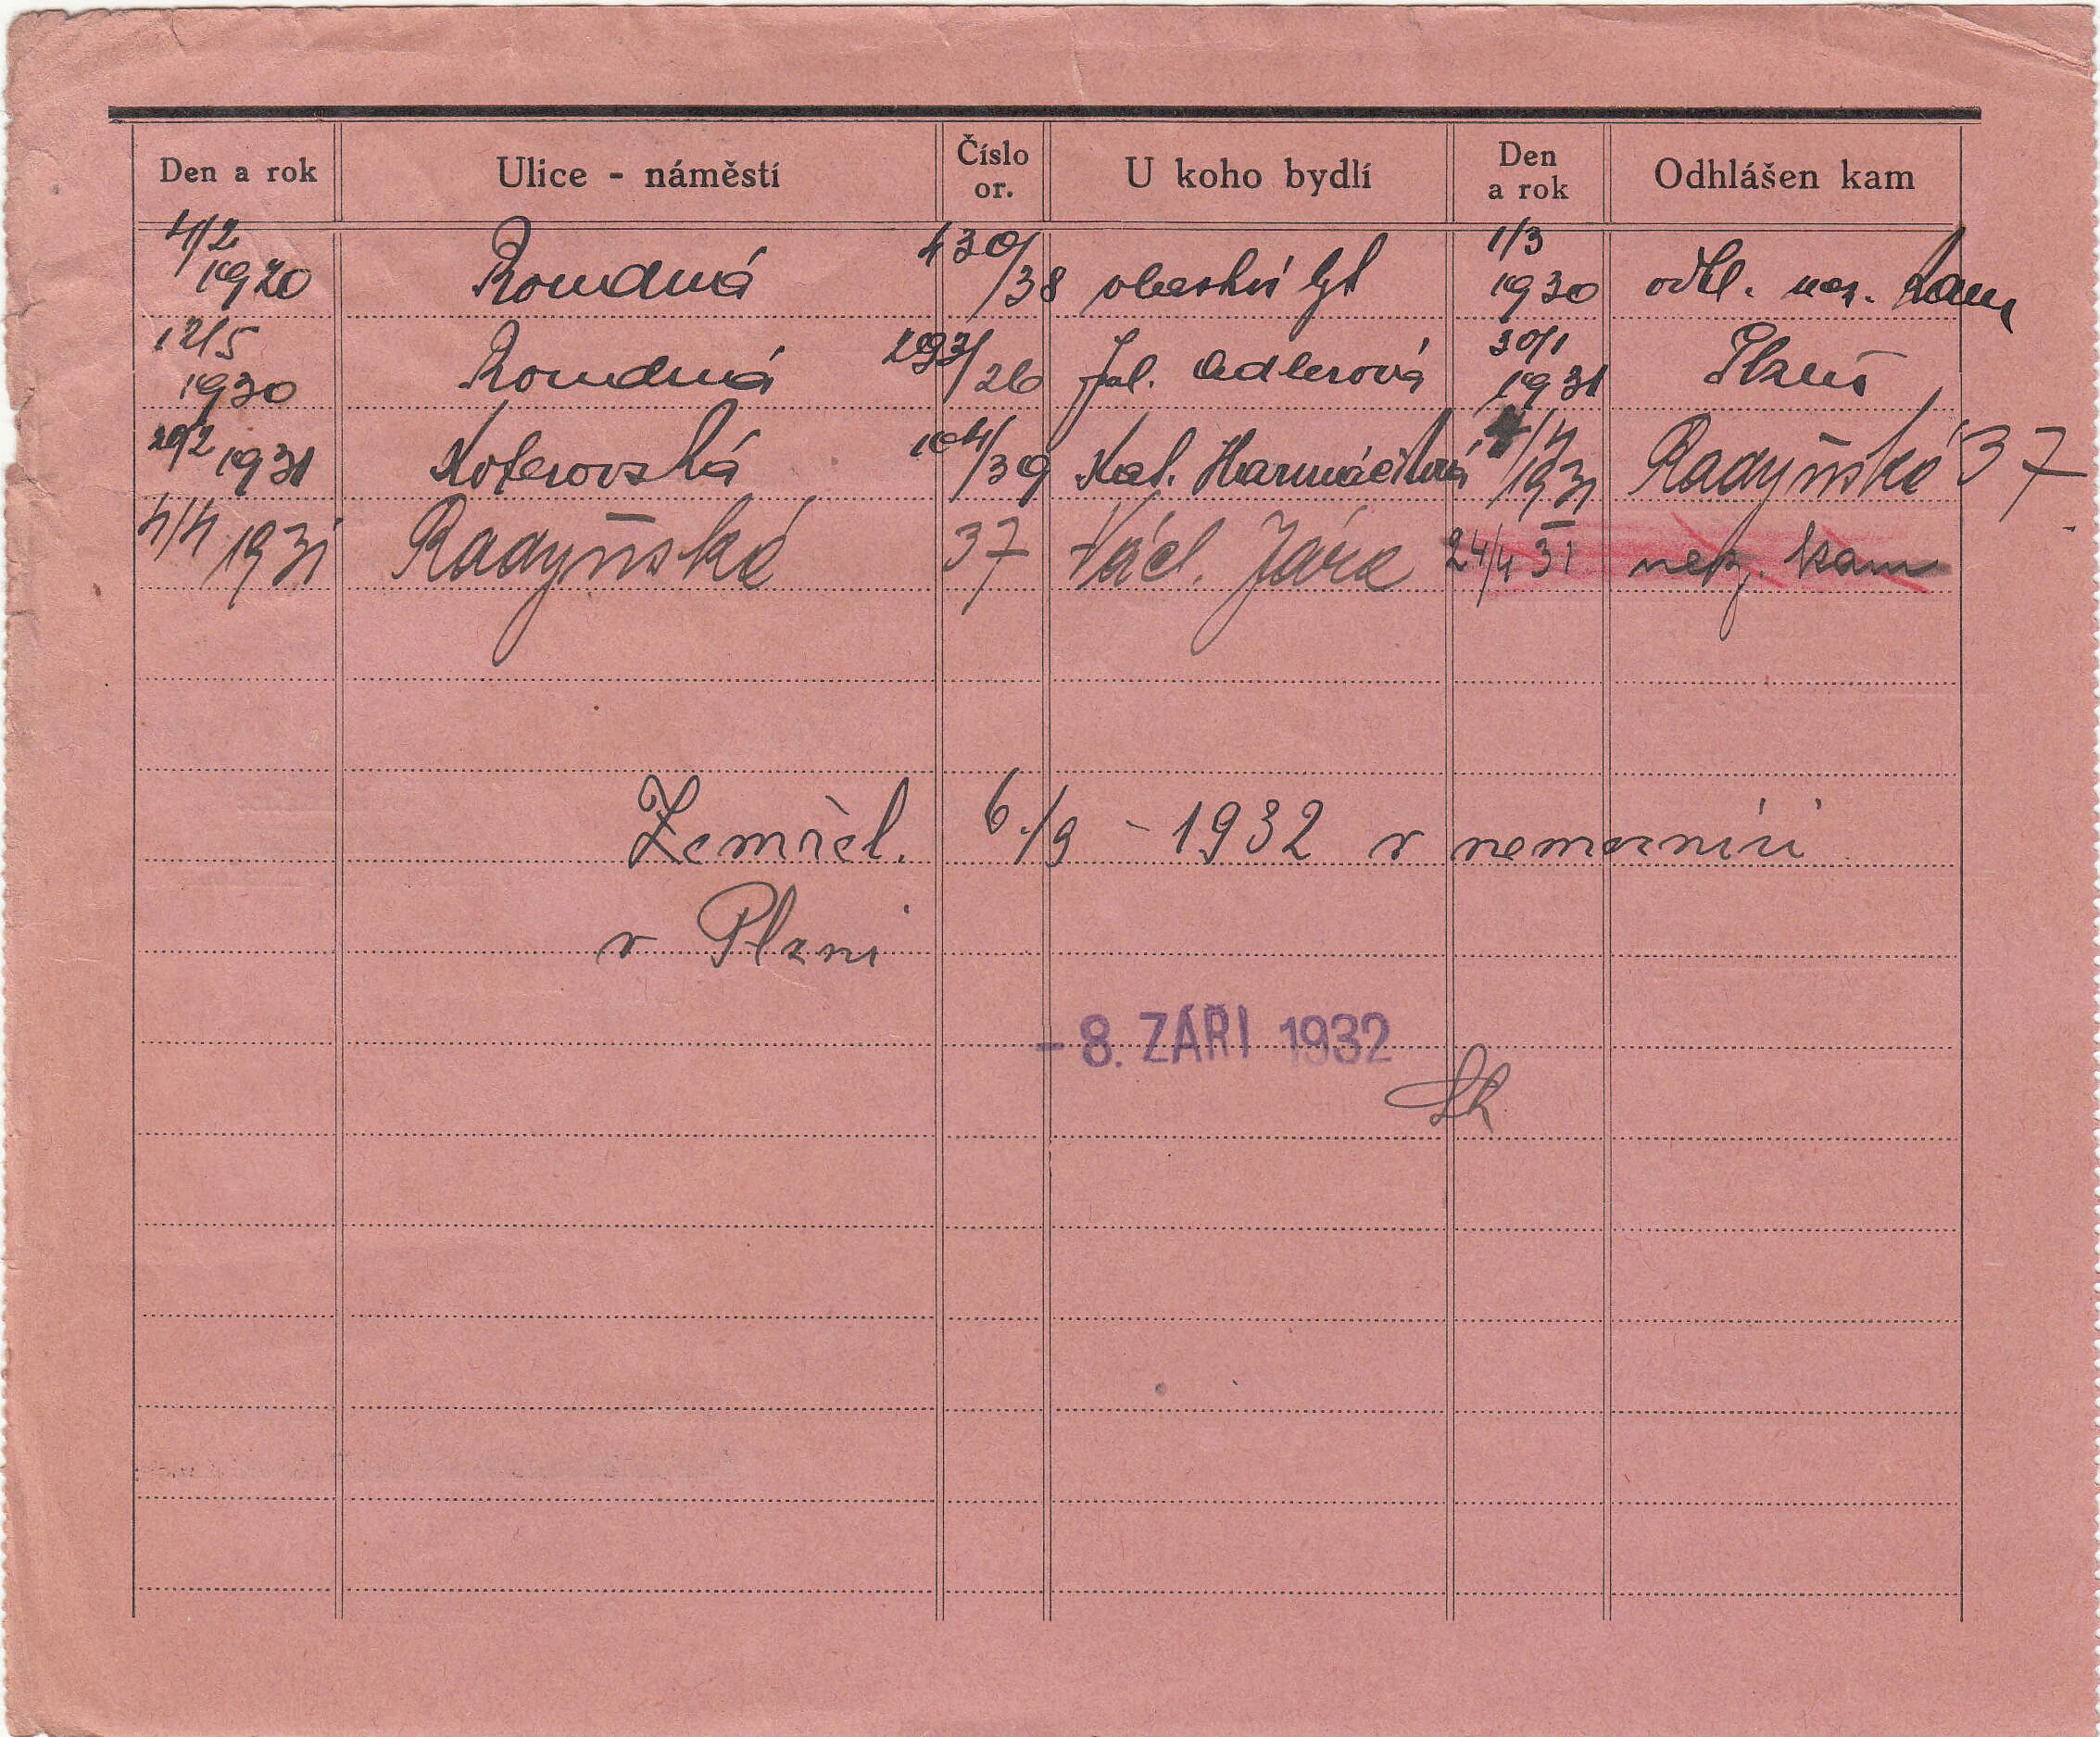 Den a rok Ulice - náměstí Číslo or. U koho bydlí Den a rok Odhlášen kam
4/2 1920 Roudná 430/38 vlastní byt 1/3 1930 odhl. nez. kam
12/5 1930 Roudná 293/26 Jul. Adlerová 30/1 1931 Plzeň
20/2 1931 Koterovská 104/39 Kat. 4/4 1931 Radyňská 37
4/4 1931 Radyňská 37 Václ. Jára 24/4 31 nez. kam
Zemřel. 6./9 - 1932 v nemocnici
v Plzni
- 8. ZÁŘÍ 1932